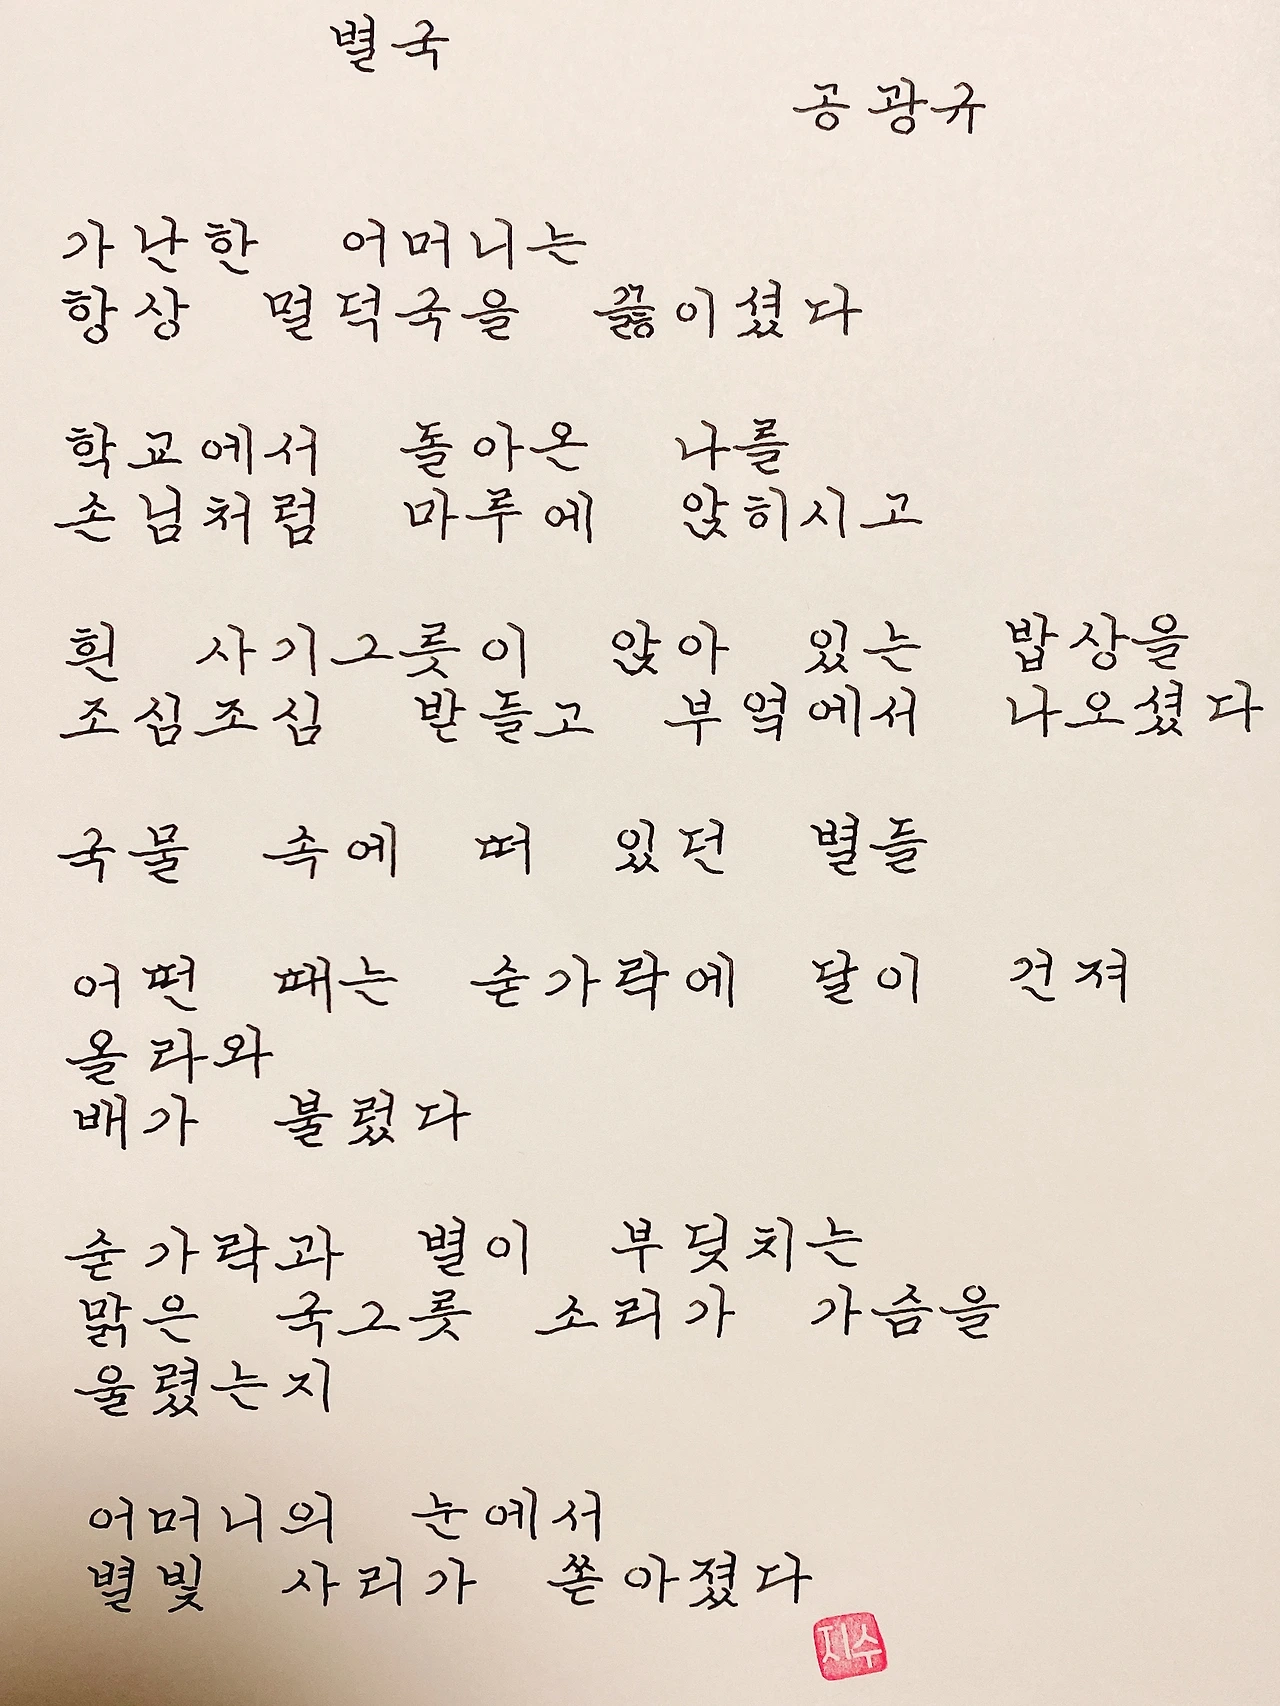 별국
공광규
가난한 어머니는
항상 멀덕국을 끓이셨다
학교에서 돌아온 나를
손님처럼 마루에 앉히시고
흰 사기그릇이 앉아 있는 밥상을
조심조심 받들고 부엌에서 나오셨다
국물 속에 떠 있던 별들
어떤 때는 숟가락에 달이 건져
올라와
배가 불렀다
숟가락과 별이 부딪치는
맑은 국그릇 소리가 가슴을
울렸는지
어머니의 눈에서
별빛 사리가 쏟아졌다
지수